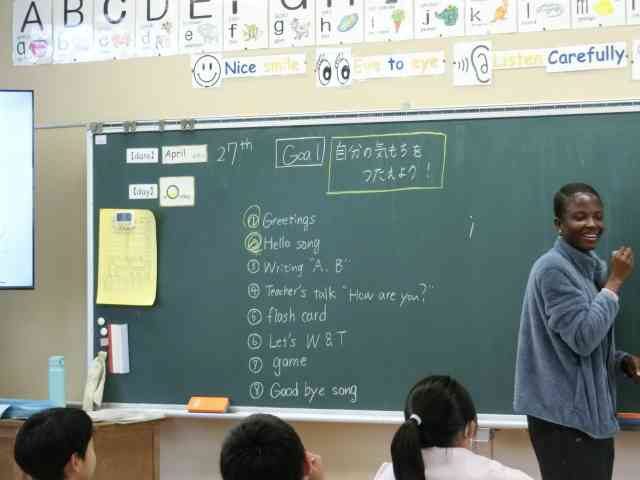 A B C D E
a b c d e f g h i j k l m
Nice smile
Eye to eye
Listen Carefully
[date] April 27th
Goal 自分の気もちを
つたえよう!
[day]
① Greetings
② Hello song
③ Writing "A. B"
④ Teacher's talk "How are you?"
⑤ flash card
⑥ Let's W & T
⑦ game
⑧ Good bye song
i